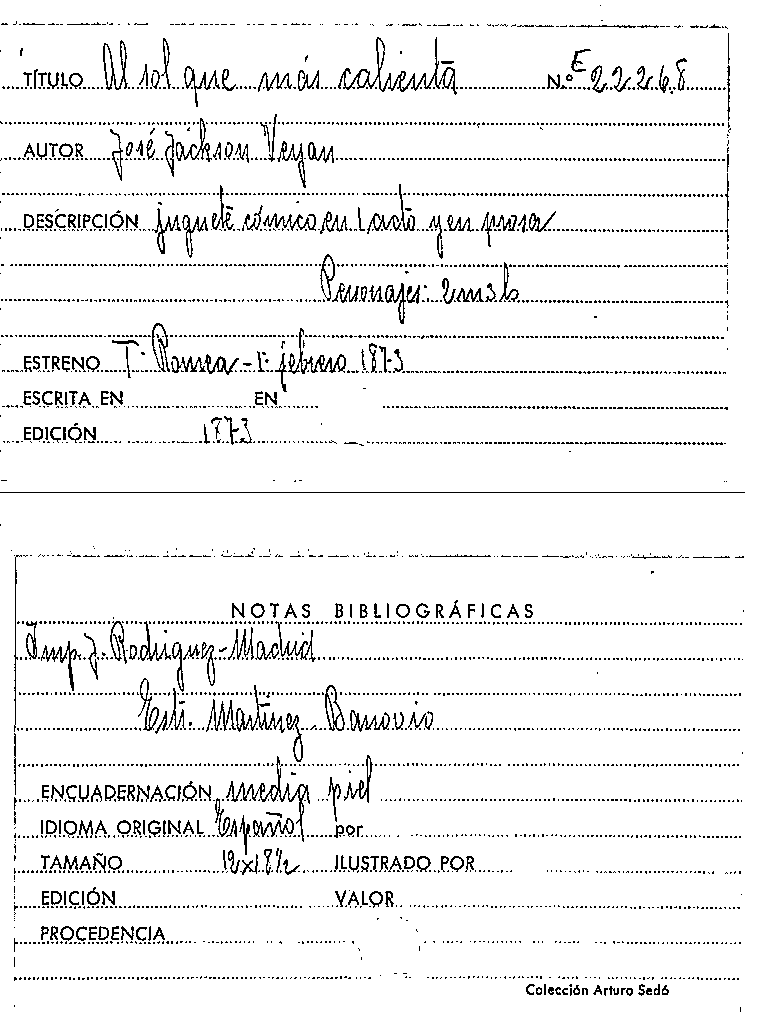 TÍTULO Al sol que más calienta N.º E 22268
AUTOR José Jackson Veyan
DESCRIPCIÓN juguete cómico en 1 acto y en prosa
Personajes: 2m3h
ESTRENO T. Romea - 1º febrero 1873
ESCRITA EN EN
EDICIÓN 1873
NOTAS BIBLIOGRÁFICAS
Imp. J. Rodriguez - Madrid
Martinez
ENCUADERNACIÓN media piel
IDIOMA ORIGINAL Español por
TAMAÑO 12x18½ ILUSTRADO POR
EDICIÓN VALOR
PROCEDENCIA
Colección Arturo Sedó